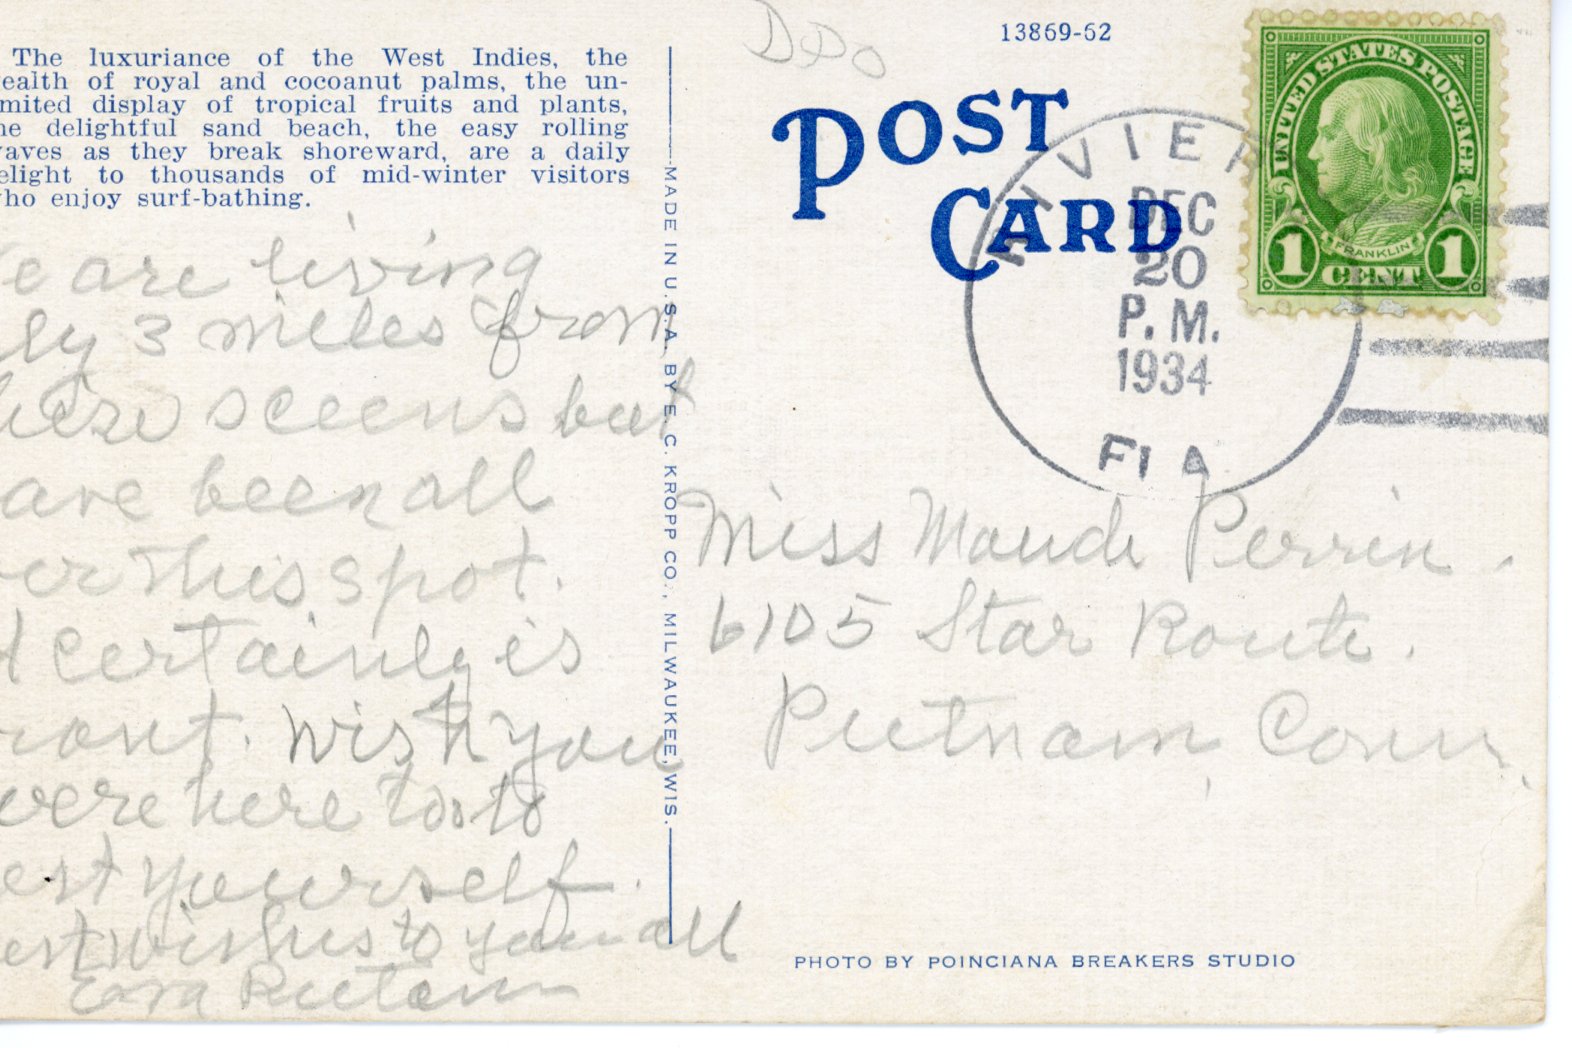 The luxuriance of the West Indies, the
ealth of royal and cocoanut palms, the un-
mited display of tropical fruits and plants,
he delightful sand beach, the easy rolling
aves as they break shoreward, are a daily
elight to thousands of mid-winter visitors
ho enjoy surf-bathing.
e are living
ly 3 miles from
these sceens but
ave been all
ver this spot.
certainly is
wish you
were here too to
est yourself.
est wishes to you all
MADE IN U.S.A. BY E. C. KROPP CO., MILWAUKEE, WIS.
DPO
13869-62
POST
CARD
RIVIER
DEC
20
P. M.
1934
FLA
UNITED STATES POSTAGE
FRANKLIN
1 CENT 1
Miss Maude Perrin.
6105 Star Route.
Putnam, Conn.
PHOTO BY POINCIANA BREAKERS STUDIO